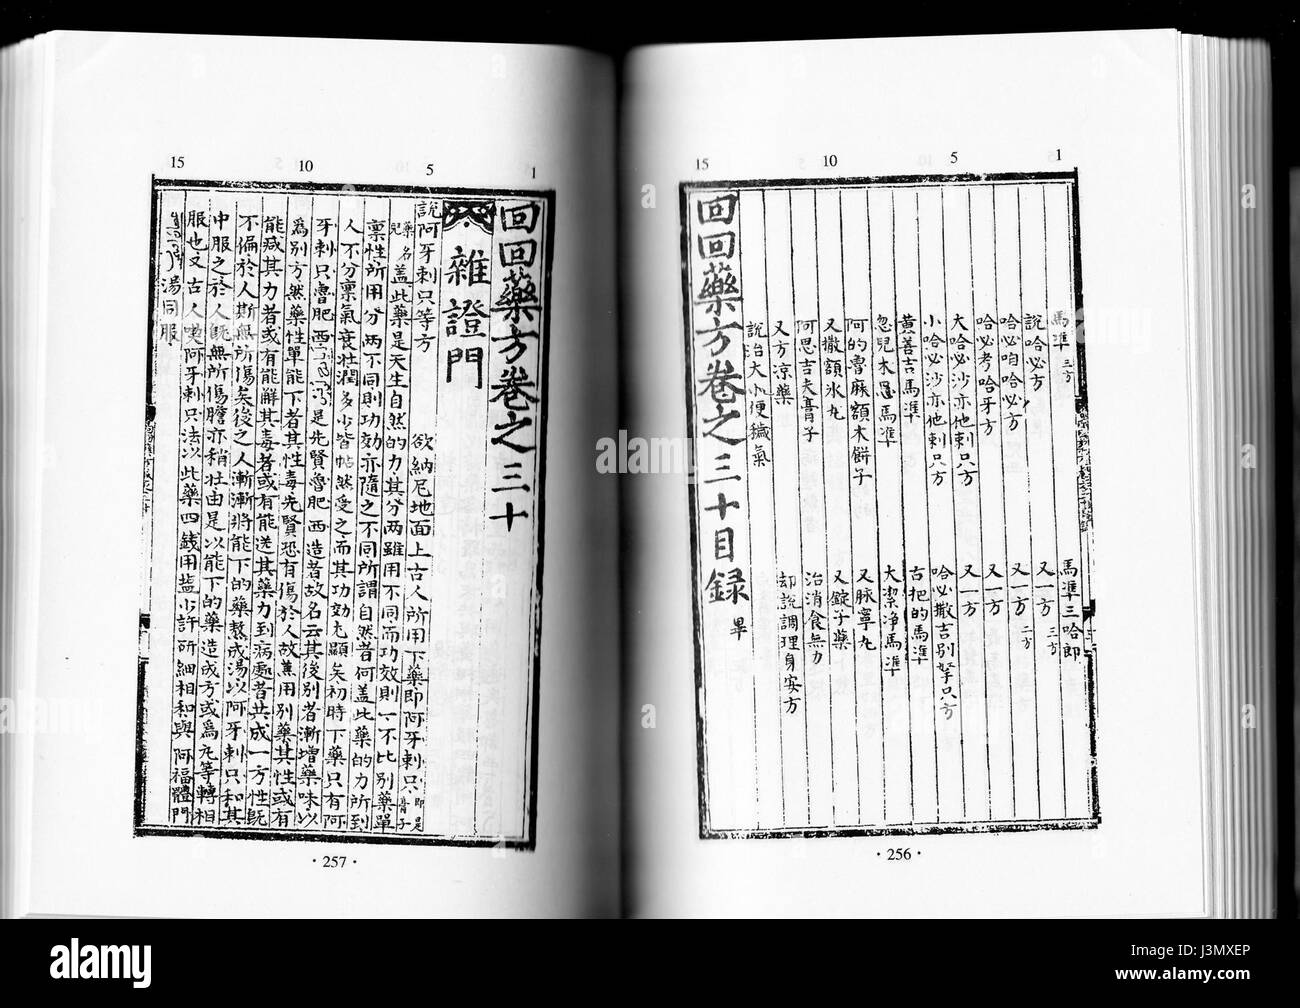 15 10 5 1
馬準 三方
馬準三哈即
說哈必方
又一方 三方
哈必咱哈必方
又一方 二方
哈必考哈牙方
又一方
大哈必沙亦他剌只方
又一方
小哈必沙亦他剌只方
哈必撒吉別拏只方
黄善吉馬準
古把的馬準
大潔淨馬準
阿的魯麻額木餅子
又脉冪丸
又撒額冰丸
又錠子藥
阿思吉夫膏子
治消食無力
又方凉藥
却說調理身安方
說治大小便穢氣
回回藥方卷之三十目録 畢
· 256 ·
15 10 5 1
回回藥方卷之三十
雜證門
說阿牙剌只等方
欲納尼地面上古人所用下藥即阿牙剌只 即是膏子
藥名 蓋此藥是天生自然的力其分兩雖用不同而功效則一不比别藥單
禀性所用分兩不同則功效亦隨之不同所謂自然者何蓋此藥的力所到
人不分禀氣衰壯潤多少皆帖然受之而其功効充顯矣初時下藥只有阿
牙剌只魯肥西
是先賢魯肥西造者故名云其後别者漸增藥味以
爲别方然藥性單能下者其性毒先賢恐有傷於人故蕉用别藥其性或有
能疏其力者或有能解其毒者或有能送其藥力到病處者共成一方性既
不偏於人斯無所傷矣後之人漸漸將能下的藥熬成湯以阿牙剌只和其
中服之於人既無所傷膽亦稍壯由是以能下的藥造成方或爲丸等轉相
服也又古人喫阿牙剌只法以此藥四錢用盐少許所細相和與阿福體門
湯同服
· 257 ·
alamy
Image ID: J3MXEP
www.alamy.com